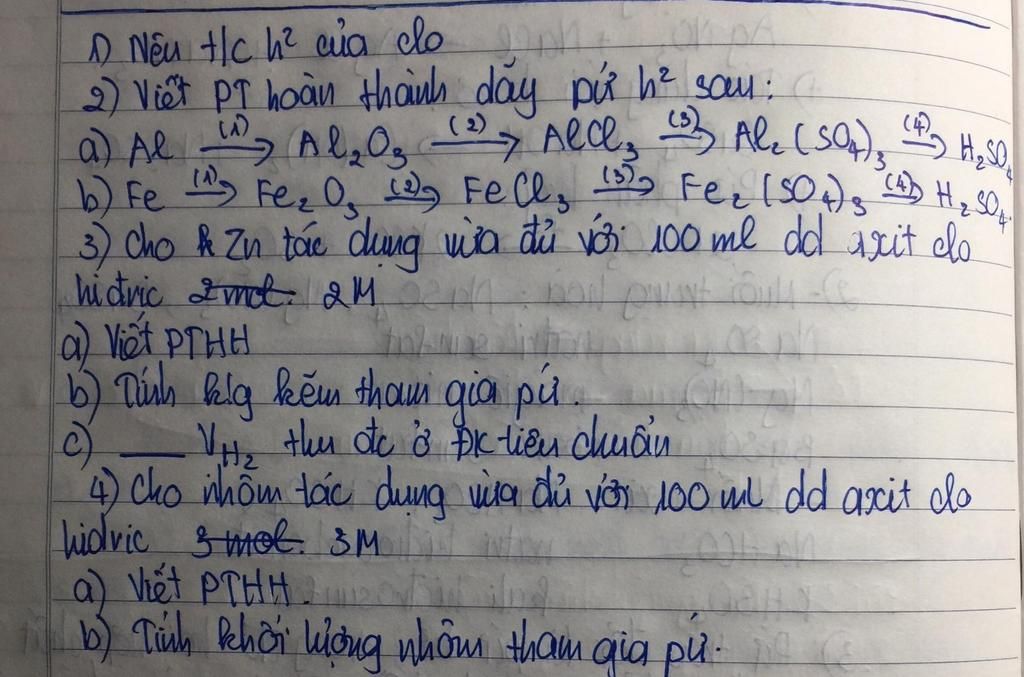 1) Nêu t/c h² của clo
2) Viết PT hoàn thành dãy pứ h² sau:
a) Al (1)→ Al₂O₃ (2)→ AlCl₃ (3)→ Al₂(SO₄)₃ (4)→ H₂SO₄
b) Fe (1)→ Fe₂O₃ (2)→ FeCl₃ (3)→ Fe₂(SO₄)₃ (4)→ H₂SO₄.
3) Cho Zn tác dụng vừa đủ với 100 ml dd axit clo
hiđric 2mol. 2M
a) Viết PTHH
b) Tính klg kẽm tham gia pứ.
c) ___ V_H₂ thu đc ở ĐK tiêu chuẩn
4) Cho nhôm tác dụng vừa đủ với 100 ml dd axit clo
hidric 3 mol. 3M
a) Viết PTHH.
b) Tính khối lượng nhôm tham gia pứ.